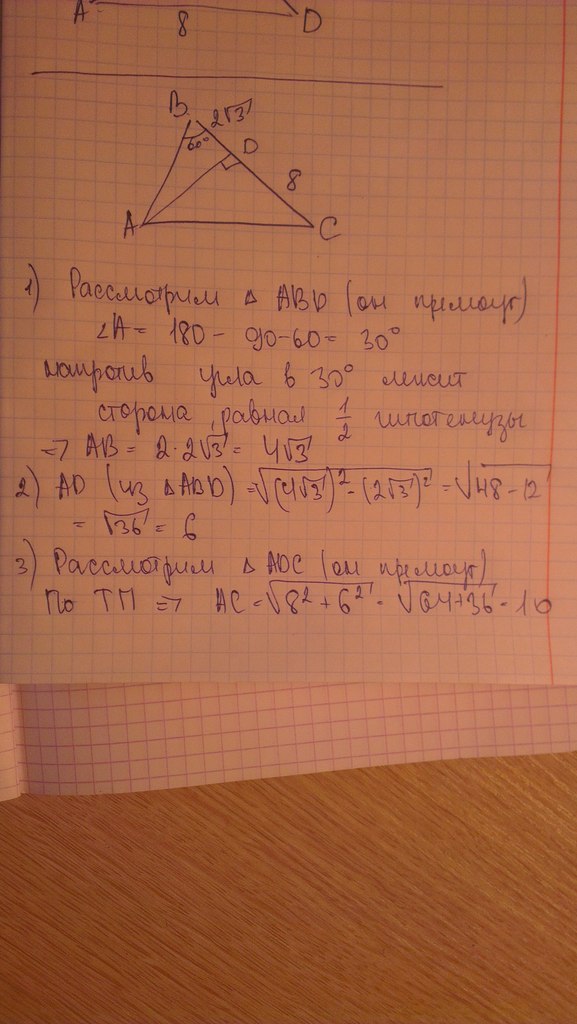 A
8
D
B
2√3
60°
D
8
A
C
1) Рассмотрим △ ABD (он прямоуг)
∠A = 180 - 90-60= 30°
напротив угла в 30° лежит
сторона, равная 1/2 гипотенузы
=> AB = 2·2√3 = 4√3
2) AD (из △ABD) = √(4√3)² - (2√3)² = √48-12
= √36 = 6
3) Рассмотрим △ ADC (он прямоуг)
По ТП => AC = √8² + 6² = √64+36 = 10